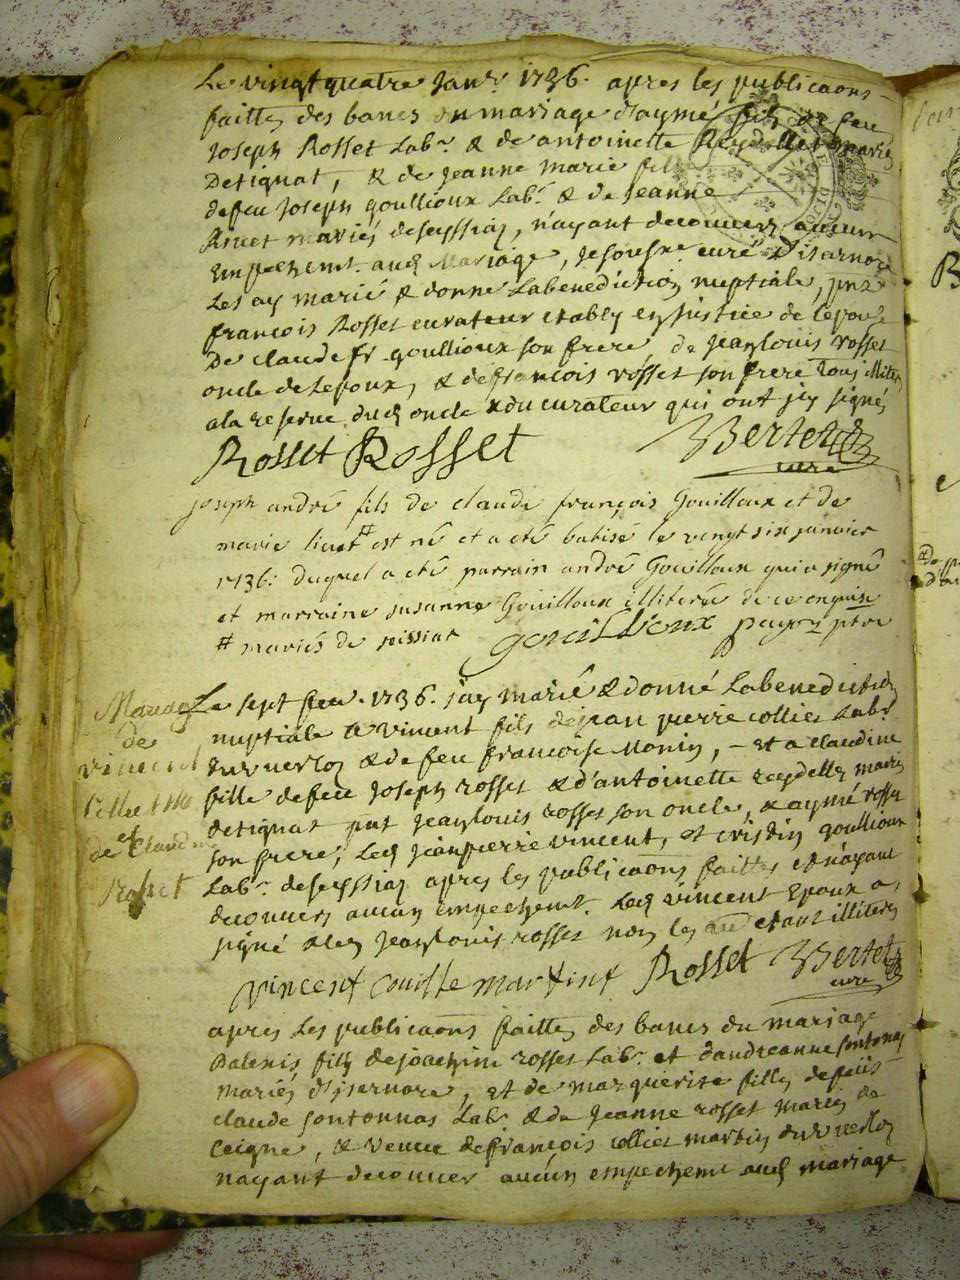 Le vingt quatre Janr 1736. apres les publicaons
faittes des bancs du mariage d'aymé fils de feu
Joseph Rosset Labr. & de antoinette Reydellet mariés
Detignat, & de Jeanne marie fil
defeu Joseph goullioux Labr. & de Jeanne
mariés deseyssia, n'ayant decouvers aucun
Empechemt. aud Mariage, Je sousne. curé D'isarnore
Les ay marié & donné Labenediction nuptiale, pnt
françois Rosset curateur etably en justice de lepoux
De claude fr goullioux son frere, de Jean louis rosset
oncle de Lepoux, & defrançois rosset son frere tous illiteres
ala reserve dud oncle & du curateur qui ont icy signés
Rosset Rosset Bertet
curé
joseph andré fils de claude françois Gouilloux et de
marie # est né et a eté batisé le vingt six janvier
1736: duquel a eté parrain andré Gouilloux qui a signé
et marraine susanne Gouilloux illiterée de ce enquise
# mariés de seissiat gouillioux
Le sept feu. 1736. j'ay marié & donné Labenediction
nuptiale a vincent fils de jean pierre collier Labr
& de feu françoise Monin, – et a claudine
fille defeu Joseph rosset & d'antoinette reydellet mariés
detignat pnt Jean louis rosset son oncle, & aymé rosset
son frere, Led Jean pierre vincent, et goullioux
Labr. deseyssia apres les publicaons faittes et n'ayant
decouvers aucun empechemt. Led vincent Epoux a
signé & led Jean louis rosset non les etant illiteres
vincent Rosset Bertet
curé
Mariag
de
vincent
et
de Claudine
Rosset
apres les publicaons faittes des bancs du mariage
Dalexis fils dejoachim rosset Labr. et dandreanne sontonas
mariés d'isernore, et de marguerite fille defeu
claude sontonnas Lab. & de Jeanne rosset mariés de
Ceigne, & veuve defrançois collier martin
nayant decouver aucun empechemt aud mariage